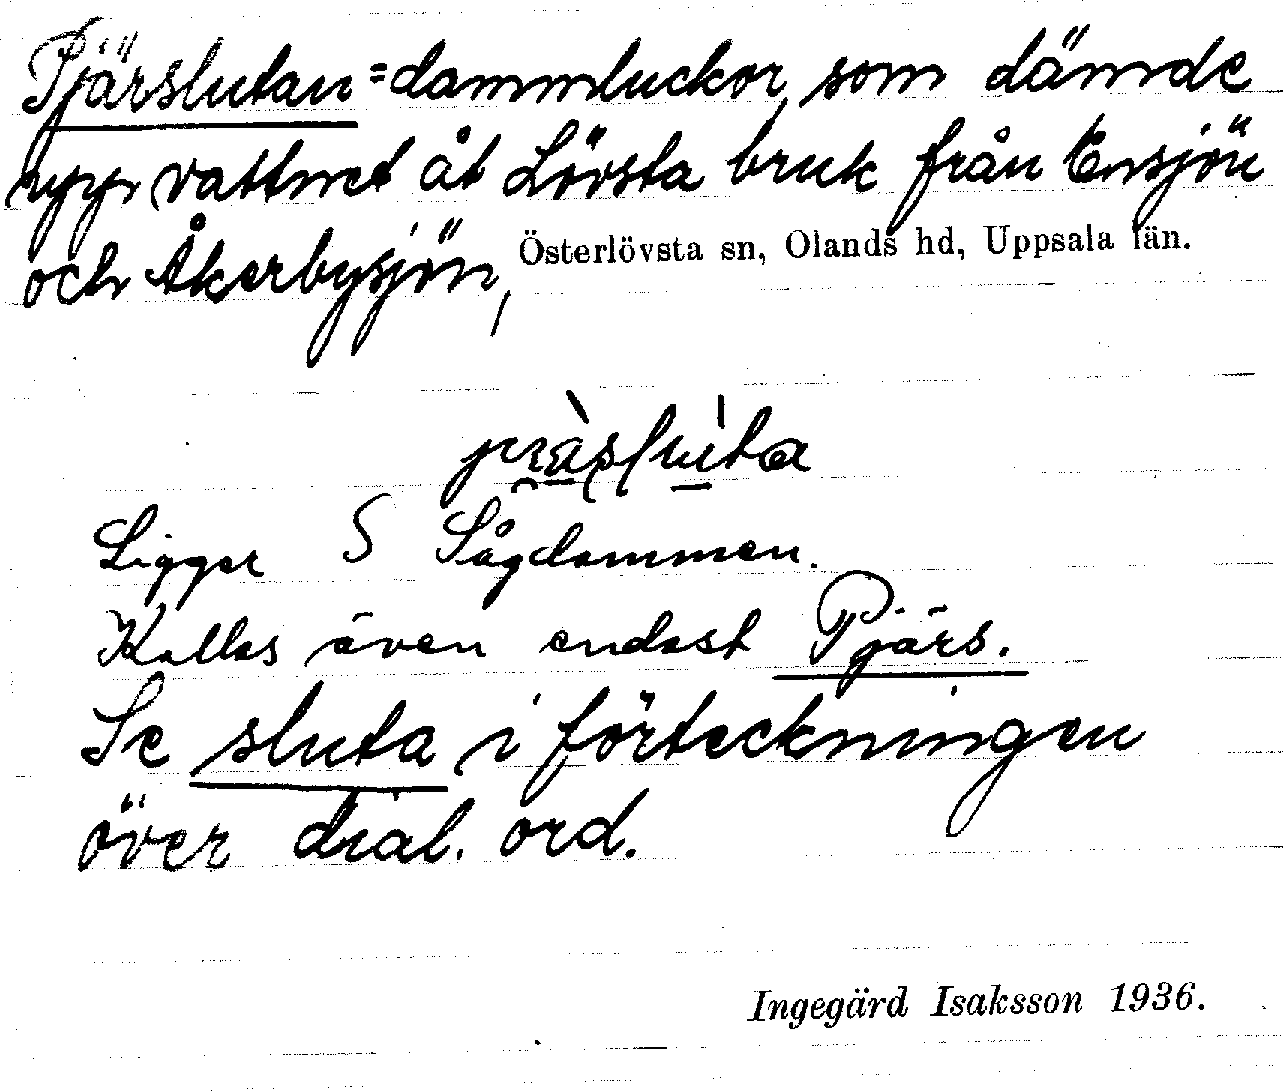 Pjärslutan = dammluckor, som dämde
upp vattnet åt Lövsta bruk från Ensjön
och Åkerbysjön,
Österlövsta sn, Olands hd, Uppsala län.
Ligger S Sågdammen.
Kallas även endast Pjärs.
Se sluta i förteckningen
över dial. ord.
Ingegärd Isaksson 1936.